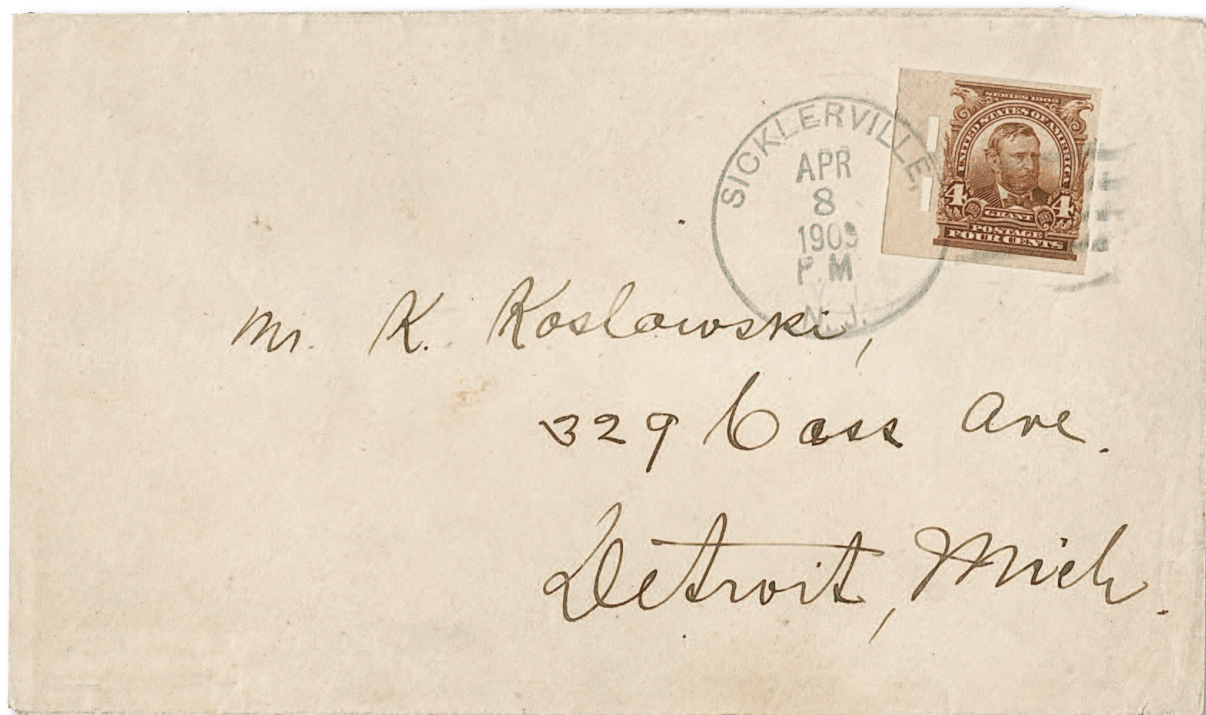 SICKLERVILLE,
APR
8
P M
N.J.
SERIES 1902
UNITED STATES OF AMERICA
4 4
GRANT
POSTAGE
FOUR CENTS
Mr. K. Koslowski,
329 Cass Ave.
Detroit, Mich.